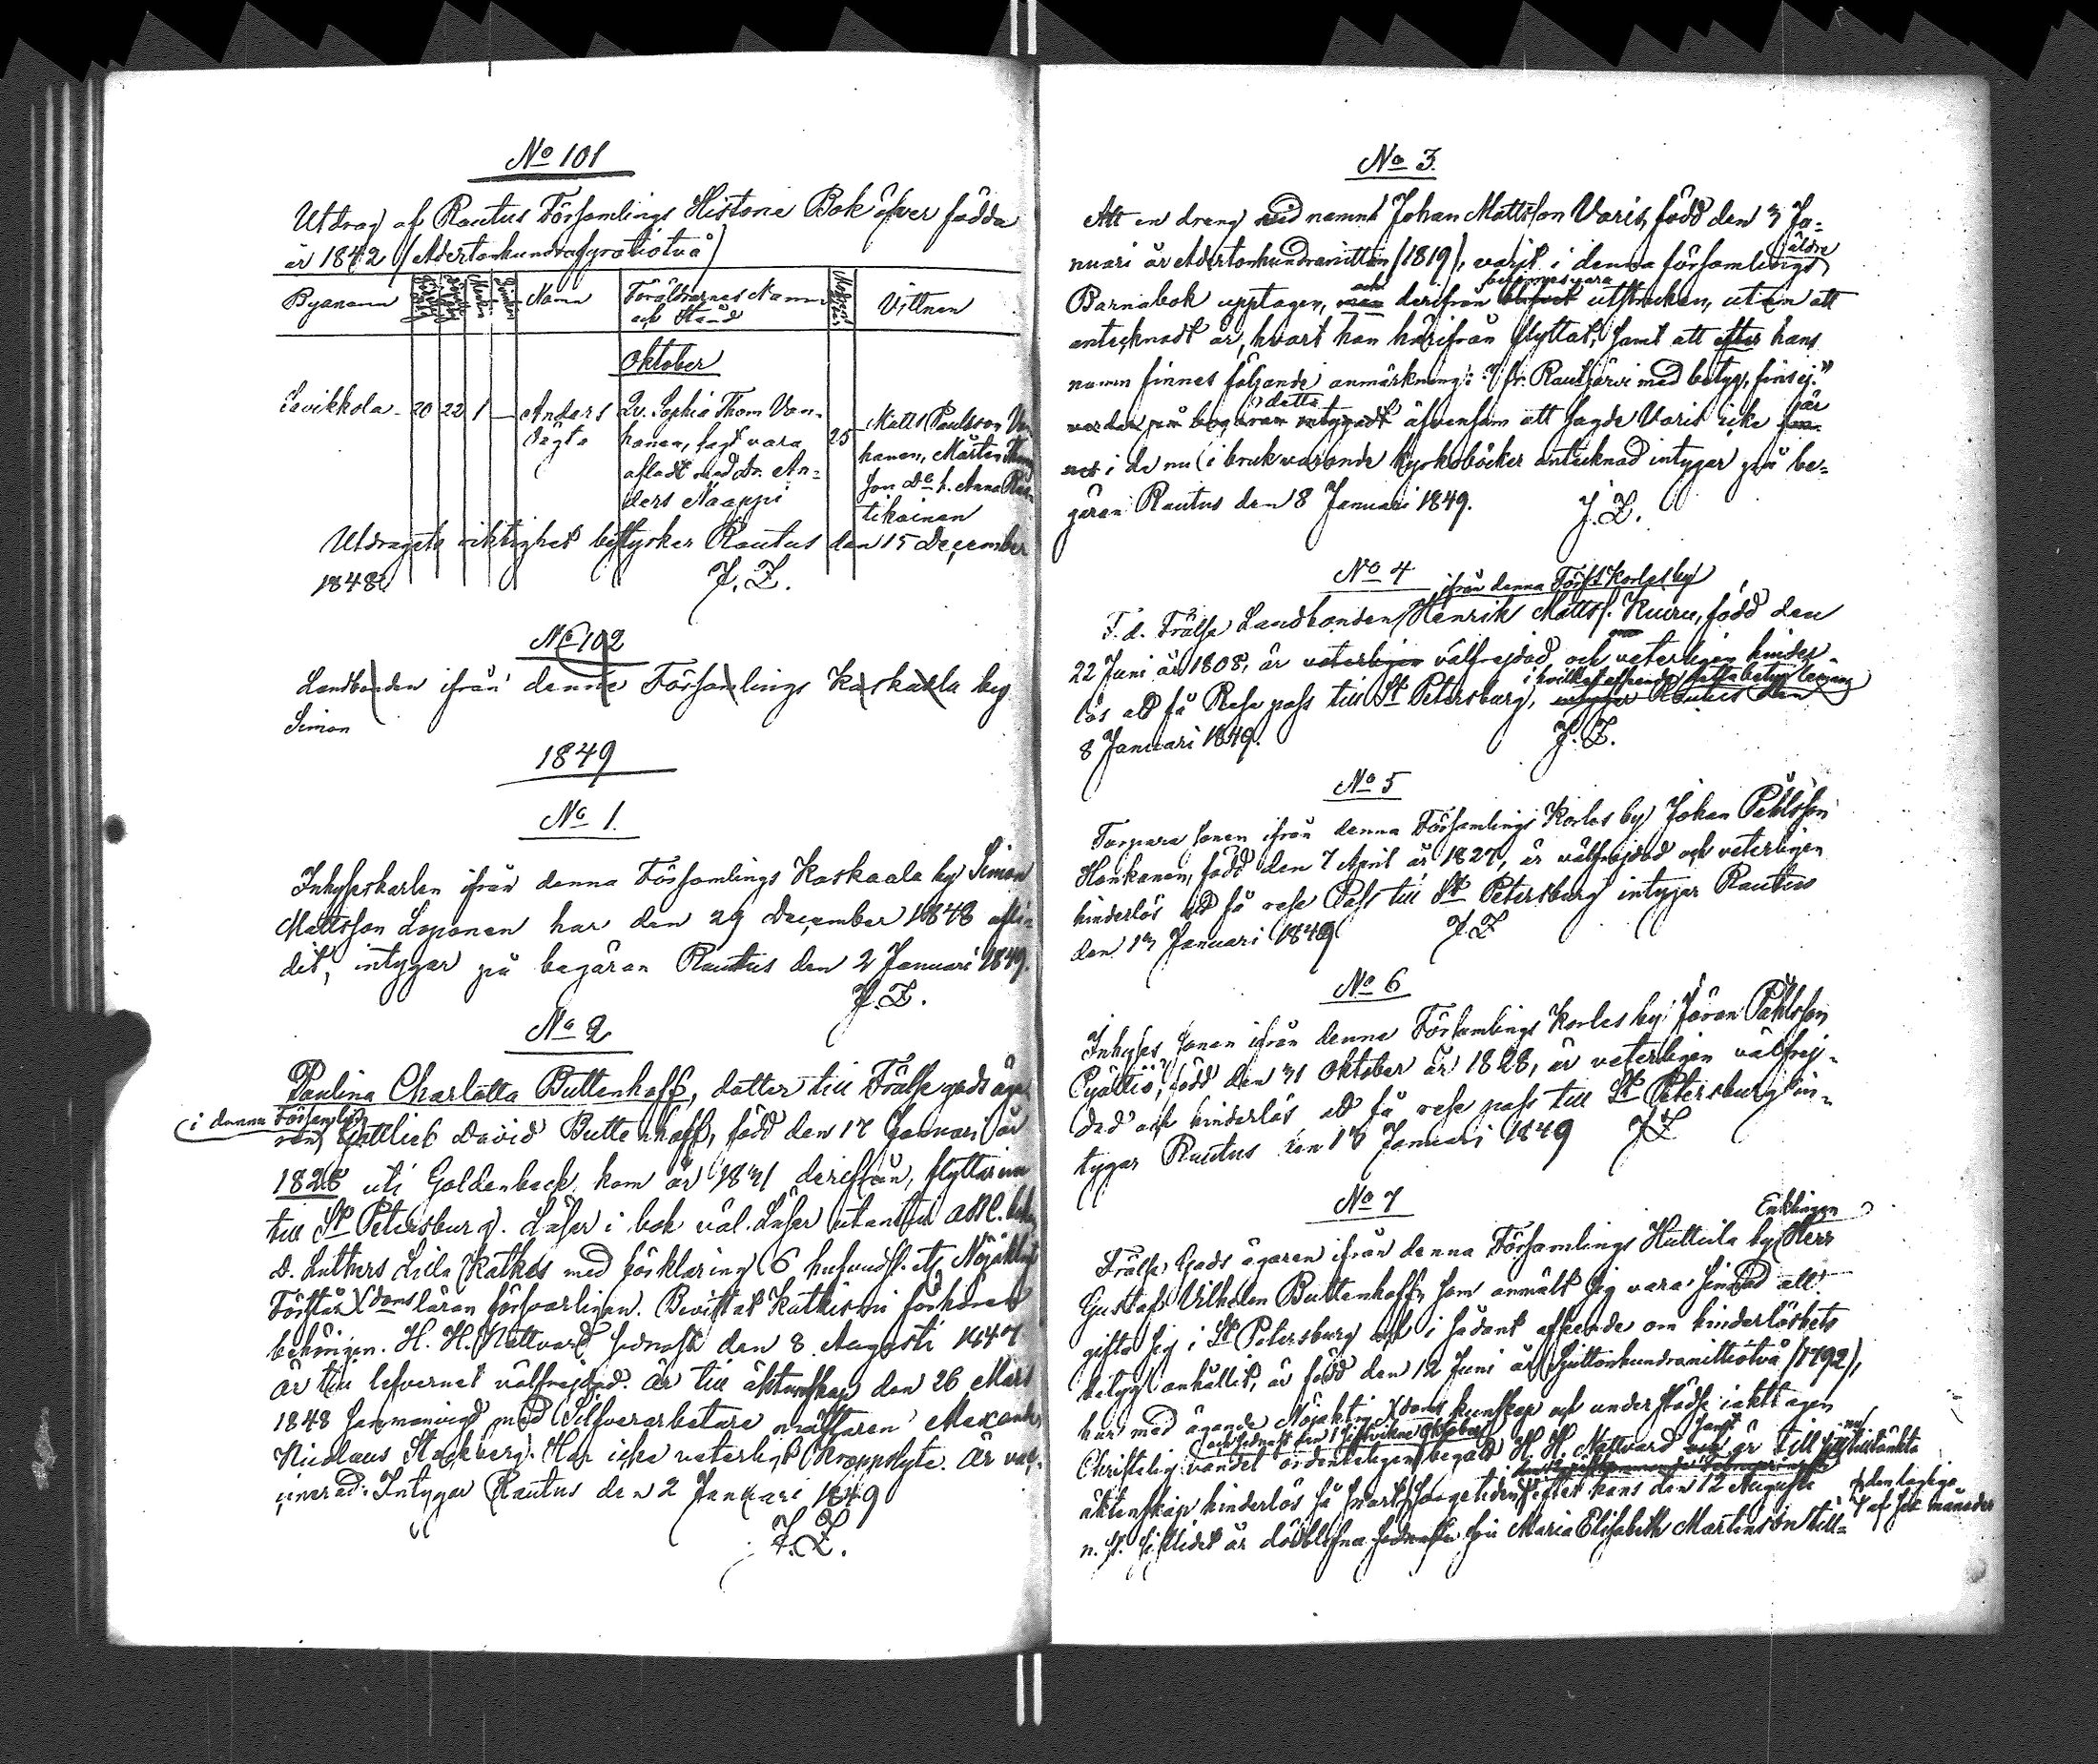 No 101
Utdrag af Rautus Församlings Historie Bok öfver födda
år 1842 (Adertonhundrafyratiotvå)
Byanamn Namn Föräldrarnes Namn och Stånd Vittnen
Oktober
Savikkola 20 22 1 — Anders Qv. Sophia Thom. Van-
oägta hanen, sagt vara 25 Matts Paulsson Van-
afladt med dr. An- hanen, Mårten Thom
ders Naappi son Do h. Anna Räi-
tikainen
Utdragets riktighet bestyrker Rautus den 15 December
1848. J. Z.
No 102
Landbonden ifrån denna Församlings Kaskaala by
Simon
1849
No 1.
Inhyseskarlen ifrån denna Församlings Kaskaala by Simon
Mattsson Loponen har den 29 December 1848 afli-
dit, intygar på begäran Rautus den 2 Januari 1849.
J. Z.
No 2
Paulina Charlotta Buttenhoff, dotter till Frälse gods äga-
i denna Församling
ren Gottlieb David Buttenhoff, född den 17 Januari år
1828 uti Goldenbeck, kom år 1831 derifrån, flyttar nu
till St Petersburg. Läser i bok väl. Läser utantill ABC. bok,
D. Luthers Lilla Kathes med förklaring 6 hufvudst. etc Nöjaktigt
Förstår Xdoms läran försvarligen. Bevistat Katkismi förhören
behörigen. H. H. Nattvard sednast den 8 Augusti 1847
Är till lefvernet välfrejdad. Är till äktenskap den 26 Mars
1848 sammanvigd med Silfverarbetare mästaren Alexander
Nicolaus Stackberg. Har icke veterligt Kroppslyte. Är vac-
cinerad. Intygar Rautus den 2 Januari 1849
J. Z.
No 3.
Att en dreng vid namn Johan Mattsson Varis, född den 3 Ja-
nuari år Adertonhundranitton (1819), varit i denna församlings äldre
Barnabok upptagen, och derifrån utstruken, utan att
antecknadt är, hvart han härifrån flyttat, samt att efter hans
namn finnes följande anmärkning: "fr. Rautjärvi med betyg, fins ej."
detta
äfvensom att sagde Varis icke är
i de nu i bruk varande kyrkoböcker antecknad intygar på be-
gäran Rautus den 8 Januari 1849. J. Z.
No 4
ifrån denna Förs:s Korles by
F. d. Frälse Landbonden Henrik Mattss. Kuiru, född den
22 Juni år 1808, är veterligen välfrejdad och veterligen hinder-
i hvilket afseende detta betyg lemnas
lös att få Rese pass till St Petersburg, intygar Rautus den
8 Januari 1849. J. Z.
No 5
Torpare sonen ifrån denna Församlings Korles by Johan Påhlsson
Honkanen, född den 7 April år 1827, är välfrejdad och veterligen
hinderlös att få rese Pass till St Petersburg intygar Rautus
den 13 Januari 1849 J. Z
No 6
Inhyses sonen ifrån denna Församlings Korles by Jöran Påhlsson
Pyältiö, född den 31 Oktober år 1828, är veterligen välfrej-
dad och hinderlös att få rese pass till St Petersburg in-
tygar Rautus den 13 Januari 1849 J Z
No 7
Enklingen
Frälse Gods ägaren ifrån denna Församlings Huttula by Herr
Gustaf Vilhelm Buttenhoff, som anmält sig vara sinnad att
gifta sig i St Petersburg och i sådant afseende om hinderlöshets
betyg anhållit, är född den 12 Juni år Sjuttonhundranittiotvå (1792),
har med ägande Nöjaktig Xdoms kunskap och under städse iakttagen
och sednast den 1 sistvikne Oktober samt nu
Christelig vandel ordenteligen begått H. H. Nattvard och är till tilltänkta
äktenskap hinderlös så snart sorgetiden efter hans den 12 Augusti den lagliga
af sex månader
n. st. sistlidet år dödblefna fru Maria Elisabeth Martinson till-